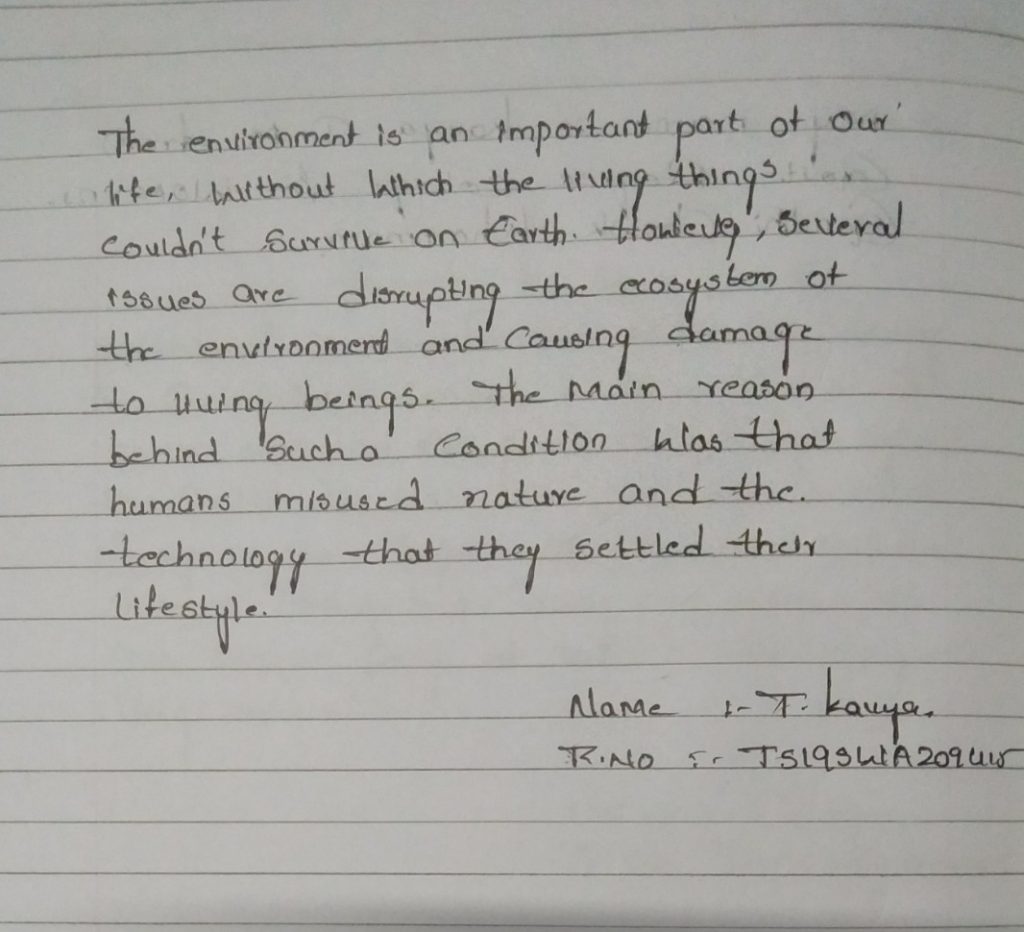 The environment is an important part of our
life, without which the living things
couldn't survive on Earth. However, several
issues are disrupting the ecosystem of
the environment and causing damage
to living beings. The main reason
behind such a condition was that
humans misused nature and the.
technology that they settled their
lifestyle.
Name :- T. Kavya.
R.No :-